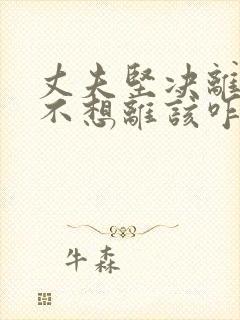 丈夫堅決離
不想離該咋
牛森